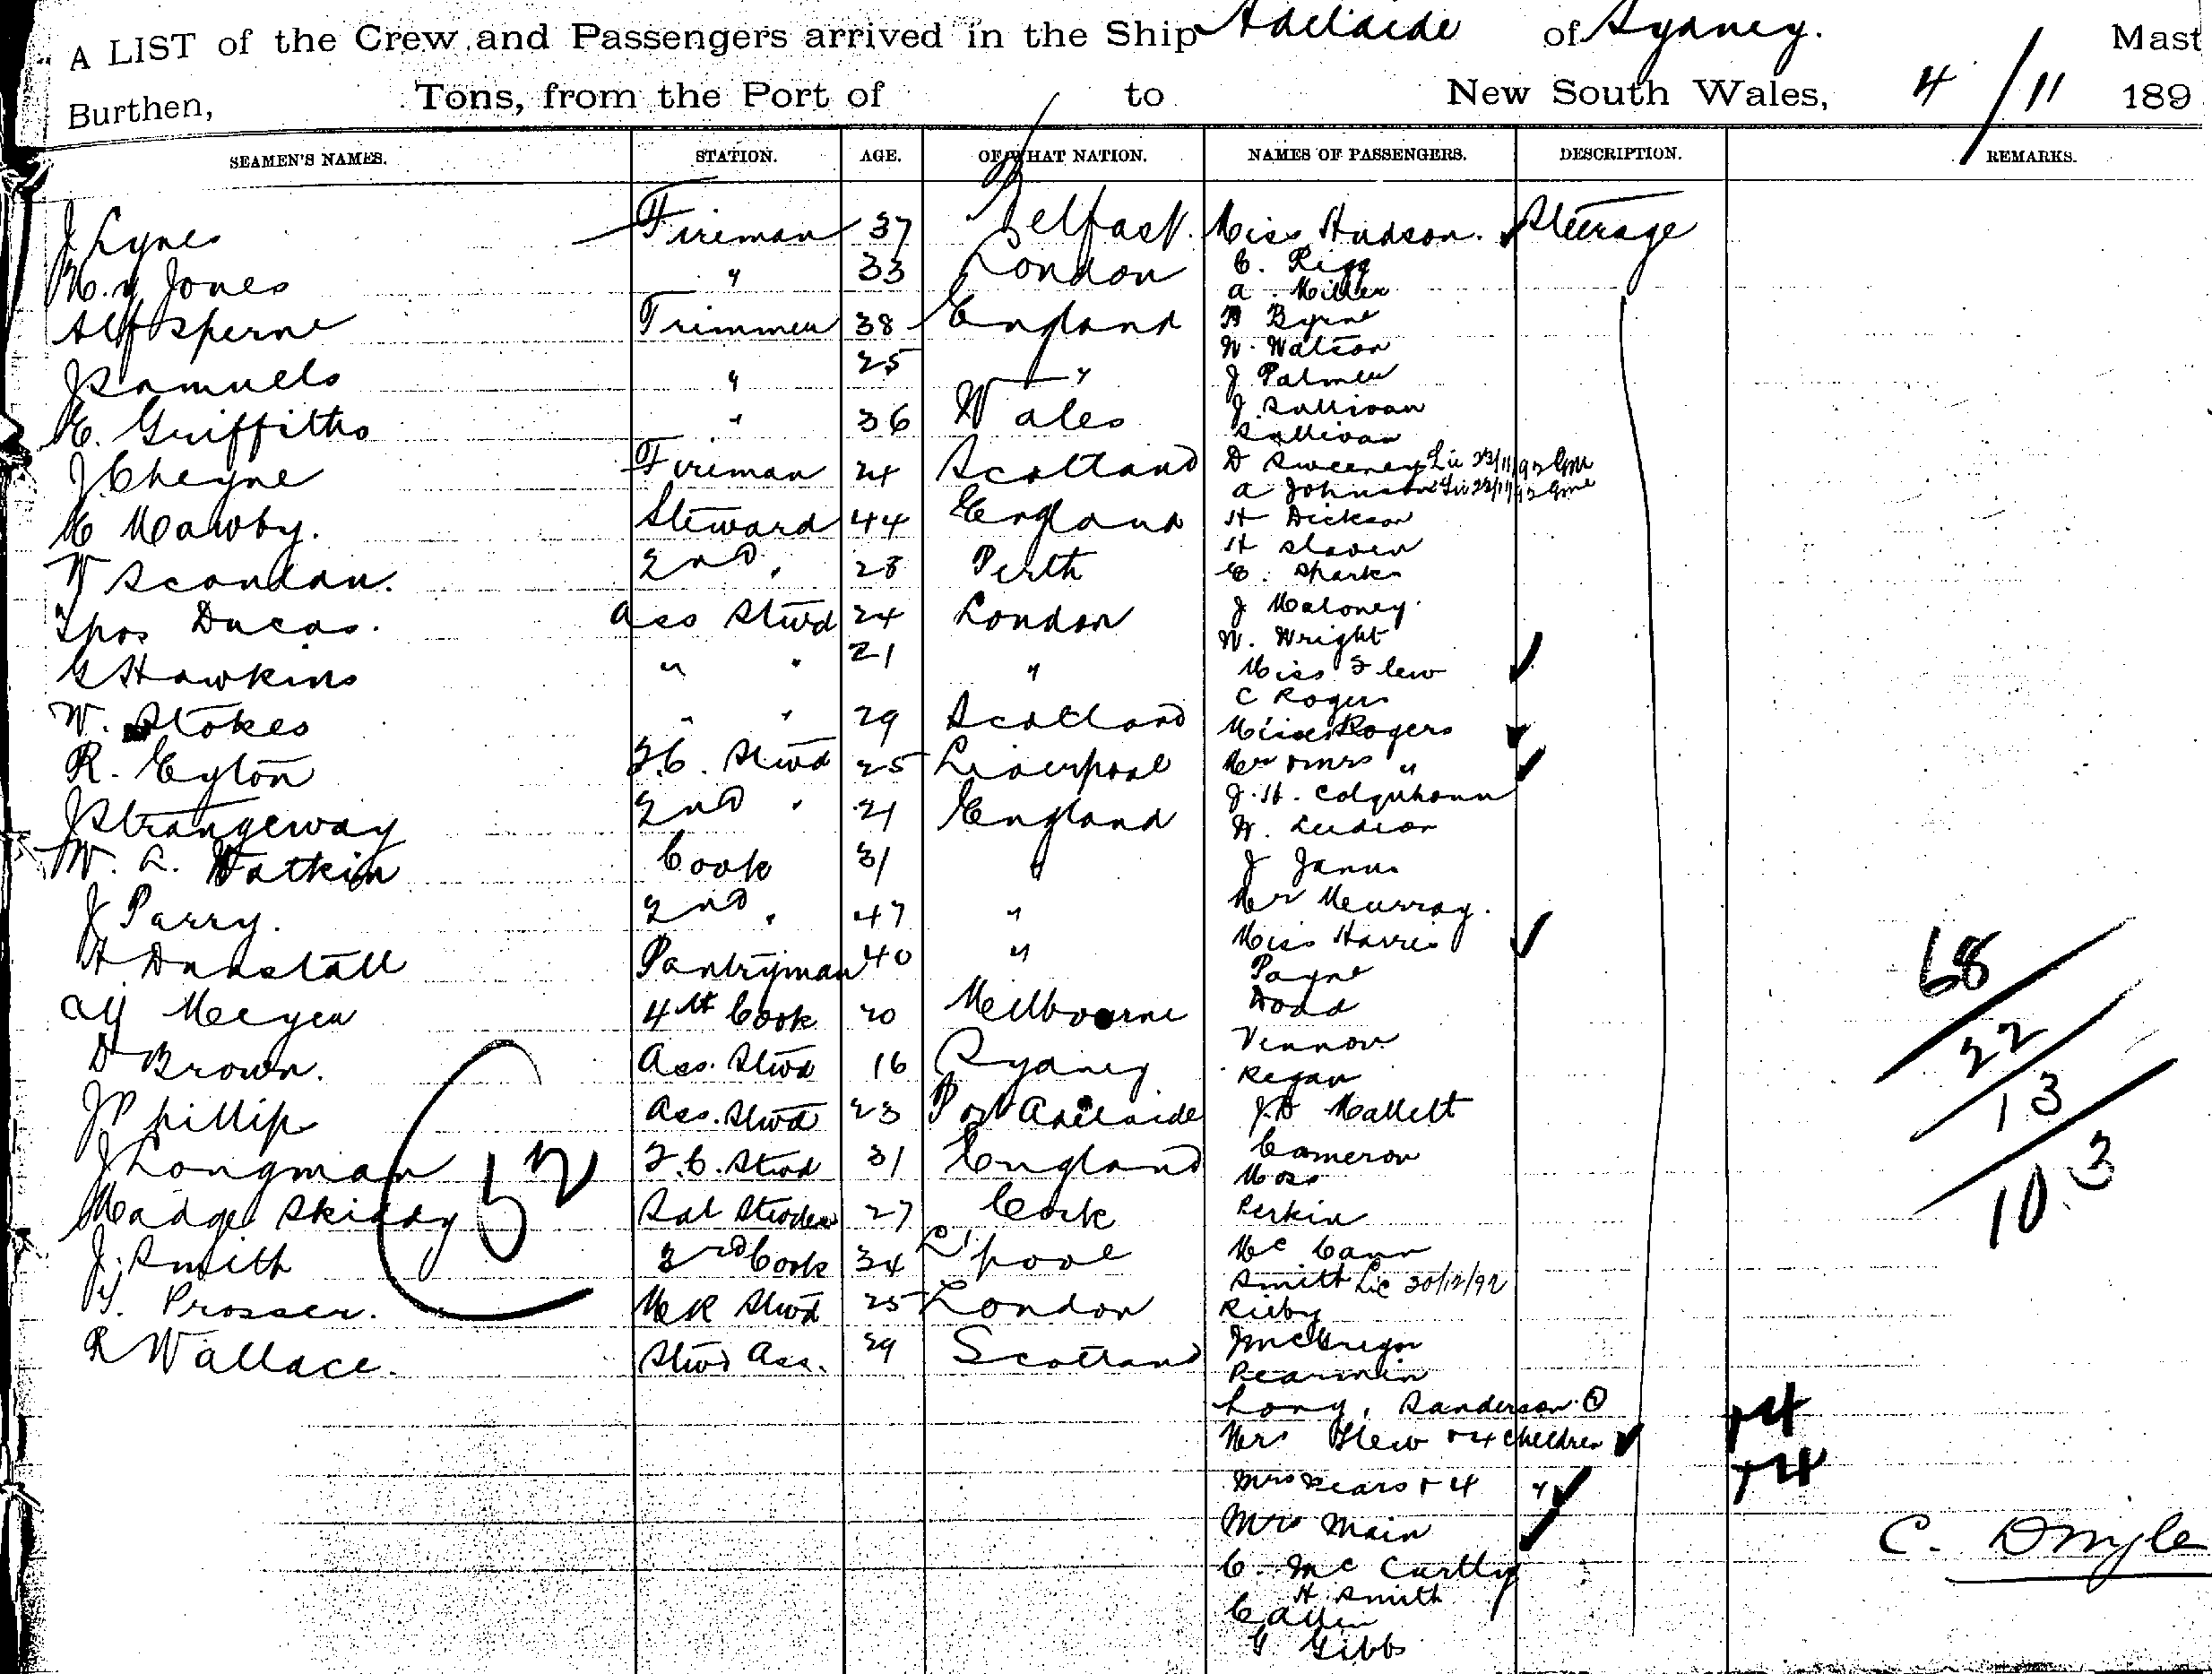 A LIST of the Crew and Passengers arrived in the Ship Adelaide of Sydney. Mast
Burthen, Tons, from the Port of to New South Wales, 4/11 189
SEAMEN'S NAMES. STATION. AGE. OF WHAT NATION. NAMES OF PASSENGERS. DESCRIPTION. REMARKS.
J Lynes Fireman 37 Belfast.
Jones " 33 London
Alf Sperne Trimmer 38 England
J Samuels " 25 "
E. Griffiths " 36 Wales
J Cheyne Fireman 24 Scotland
Mawby. Steward 44 England
W Scandan. 2nd " 28 Perth
Thos Ducas. Ass Stwd 24 London
G Hawkins " " 21 "
W. Stokes " " 29 Scotland
R. Eyton F.C. Stwd 25 Liverpool
J Strangeway 2nd " 21 England
W. A. Watkin Cook 31 "
J Parry. 2nd " 47 "
H Dunstall Pantryman 40 "
Alf Meeyer 4th Cook 20 Melbourne
D Brown. Ass. Stwd 16 Sydney
J Phillip Ass. Stwd 23 Port Adelaide
J Longman F.C. Stwd 31 England
Madge Skiddy Sal Stwdess 27 Cork
J. Smith 3rd Cook 34 L'pool
Prosser. Stwd 25 London
R Wallace. Stwd Ass. 29 Scotland
52
Miss Hudson. Steerage
C. Rigg
A. Miller
B Byrne
W. Watson
J Palmer
J. Sullivan
Sullivan
D Sweeney Lic 23/11/92
A Johnston Lic 23/11/92
H Dickson
H Slaven
E. Sparks
J Maloney.
W. Wright
Miss Flew
C Rogers
Miss Rogers
Mr & Mrs "
J. H. Colquhoun
W.
J
Mr Murray.
Miss Harris
Payne
Dodd
Vennor
Regan
J. D Mallett
Cameron
Moss
Perkin
Mc Cann
Smith Lic 20/12/92
Rilby
J McGregor
Pearmin
Long, Sanderson. 2
Mrs Flew & 4 Children +4
Mrs Sears & 4 " +4
Mrs Main
C. Mc Carthy
H Smith
C Allen
G Gibbs
68
22
13
103
C.